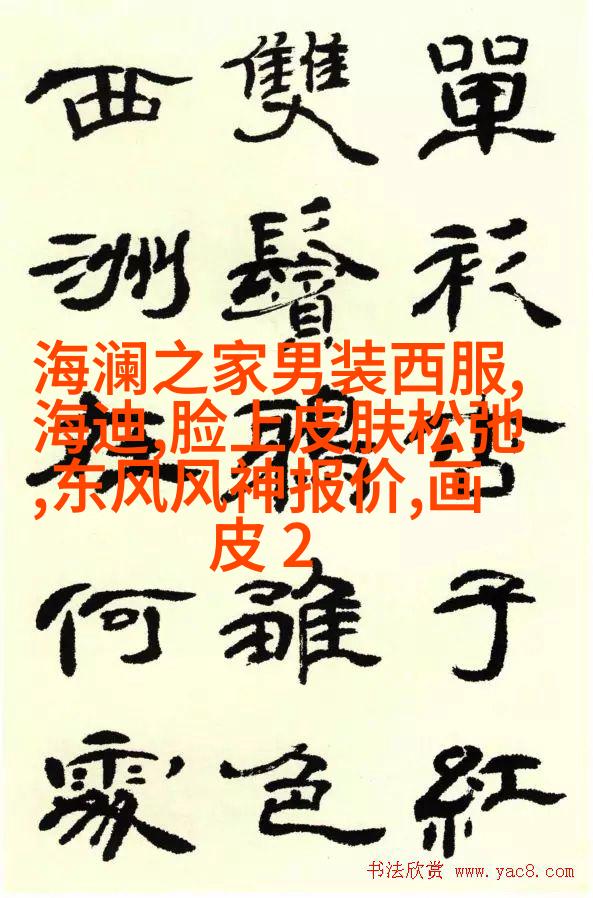 單衫子紅
雙鬢雛色
西洲何處
海澜之家男装西服,
海迪,脸上皮肤松弛
,东风风神报价,画
皮 2
书法欣赏 www.yac8.com